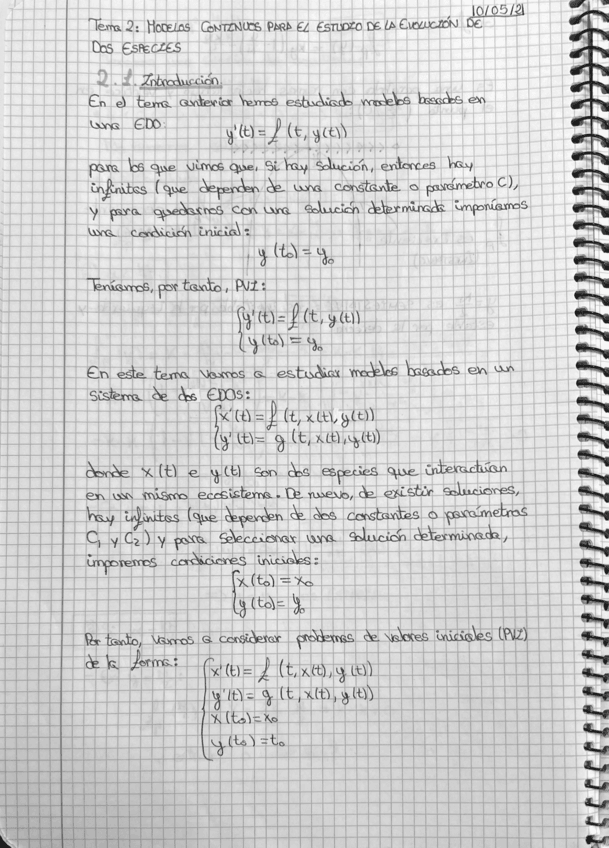 10/05/21
Tema 2: MODELOS CONTINUOS PARA EL ESTUDIO DE LA EVOLUCIÓN DE
DOS ESPECIES
2.1. Introducción
En el tema anterior hemos estudiado modelos basados en
una EDO:
y'(t) = f (t, y(t))
para los que vimos que, si hay solución, entonces hay
infinitas (que dependen de una constante o parámetro C),
y para quedarnos con una solución determinada imponíamos
una condición inicial:
y (t₀) = y₀
Teníamos, por tanto, PVI:
{y'(t) = f (t, y(t))
{y(t₀) = y₀
En este tema vamos a estudiar modelos basados en un
sistema de dos EDOs:
{x'(t) = f (t, x(t), y(t))
{y'(t) = g (t, x(t), y(t))
donde x(t) e y(t) son dos especies que interactúan
en un mismo ecosistema. De nuevo, de existir soluciones,
hay infinitas (que dependen de dos constantes o parámetros
C₁ y C₂) y para seleccionar una solución determinada,
imponemos condiciones iniciales:
{x(t₀) = x₀
{y(t₀) = y₀
Por tanto, vamos a considerar problemas de valores iniciales (PVI)
de la forma: {x'(t) = f (t, x(t), y(t))
y'(t) = g (t, x(t), y(t))
x(t₀) = x₀
y(t₀) = t₀